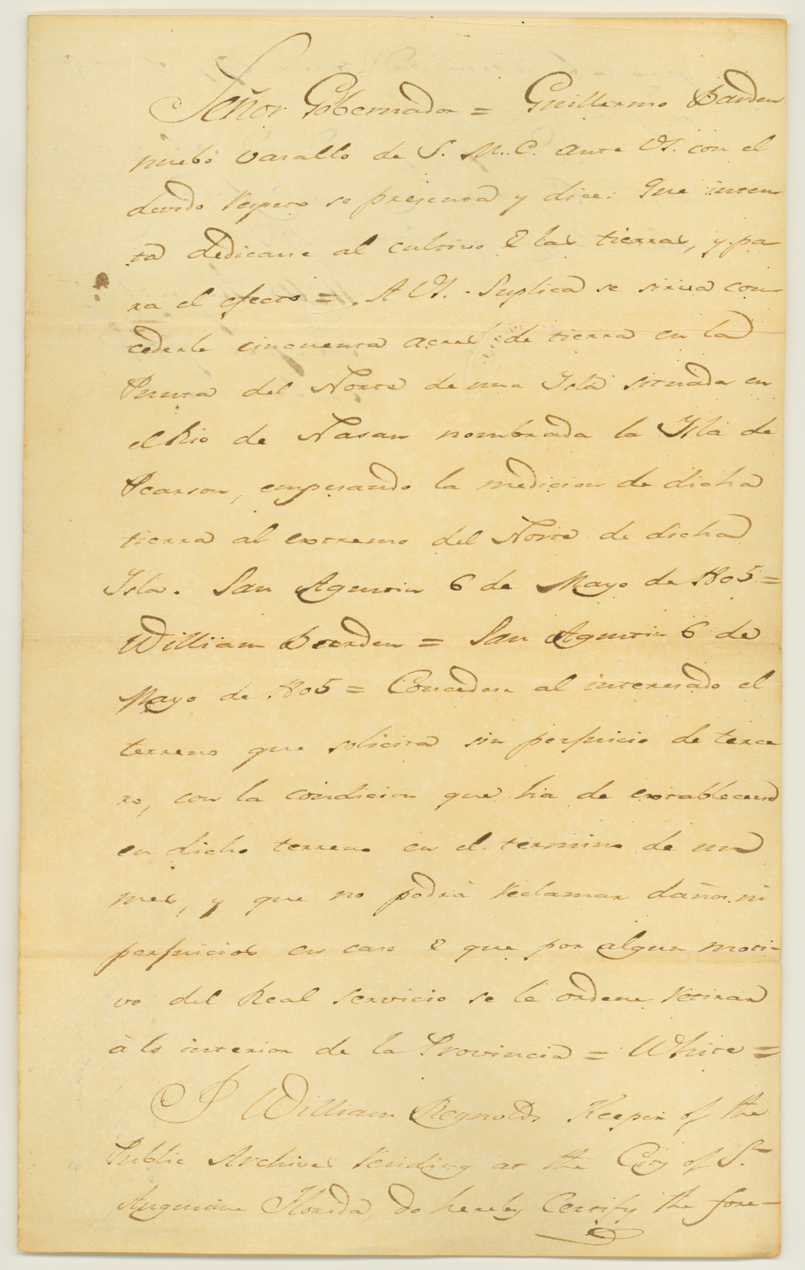 Señor Gobernador = Guillermo Barden
nuebo vasallo de S. M. C. ante VS. con el
devido respeto se presenta y dice: Que inten
ta dedicarse al cultivo de las tierras, y pa-
ra el efecto = A VS. Suplica se sirva con-
cederle cincuenta acres de tierra en la
Punta del Norte de una Isla situada en
el Rio de Nasau nombrada la Isla de
Pearson, empesando la medicion de dicha
tierra al extremo del Norte de dicha
Isla. San Agustin 6 de Mayo de 1805 =
William Bearden = San Agustin 6 de
Mayo de 1805 = Concedese al interesado el
terreno que solicita sin perjuicio de terce
ro, con la condicion que ha de establecerse
en dicho terreno en el termino de un
mes, y que no podrá reclamar daños ni
perjuicios en caso de que por algun moti-
vo del Real servicio se le ordene retirar
à lo interior de la Provincia = White =
I William Reynolds Keeper of the
Public Archives residing at the City of St.
Augustine Florida, do hereby Certify the fore-